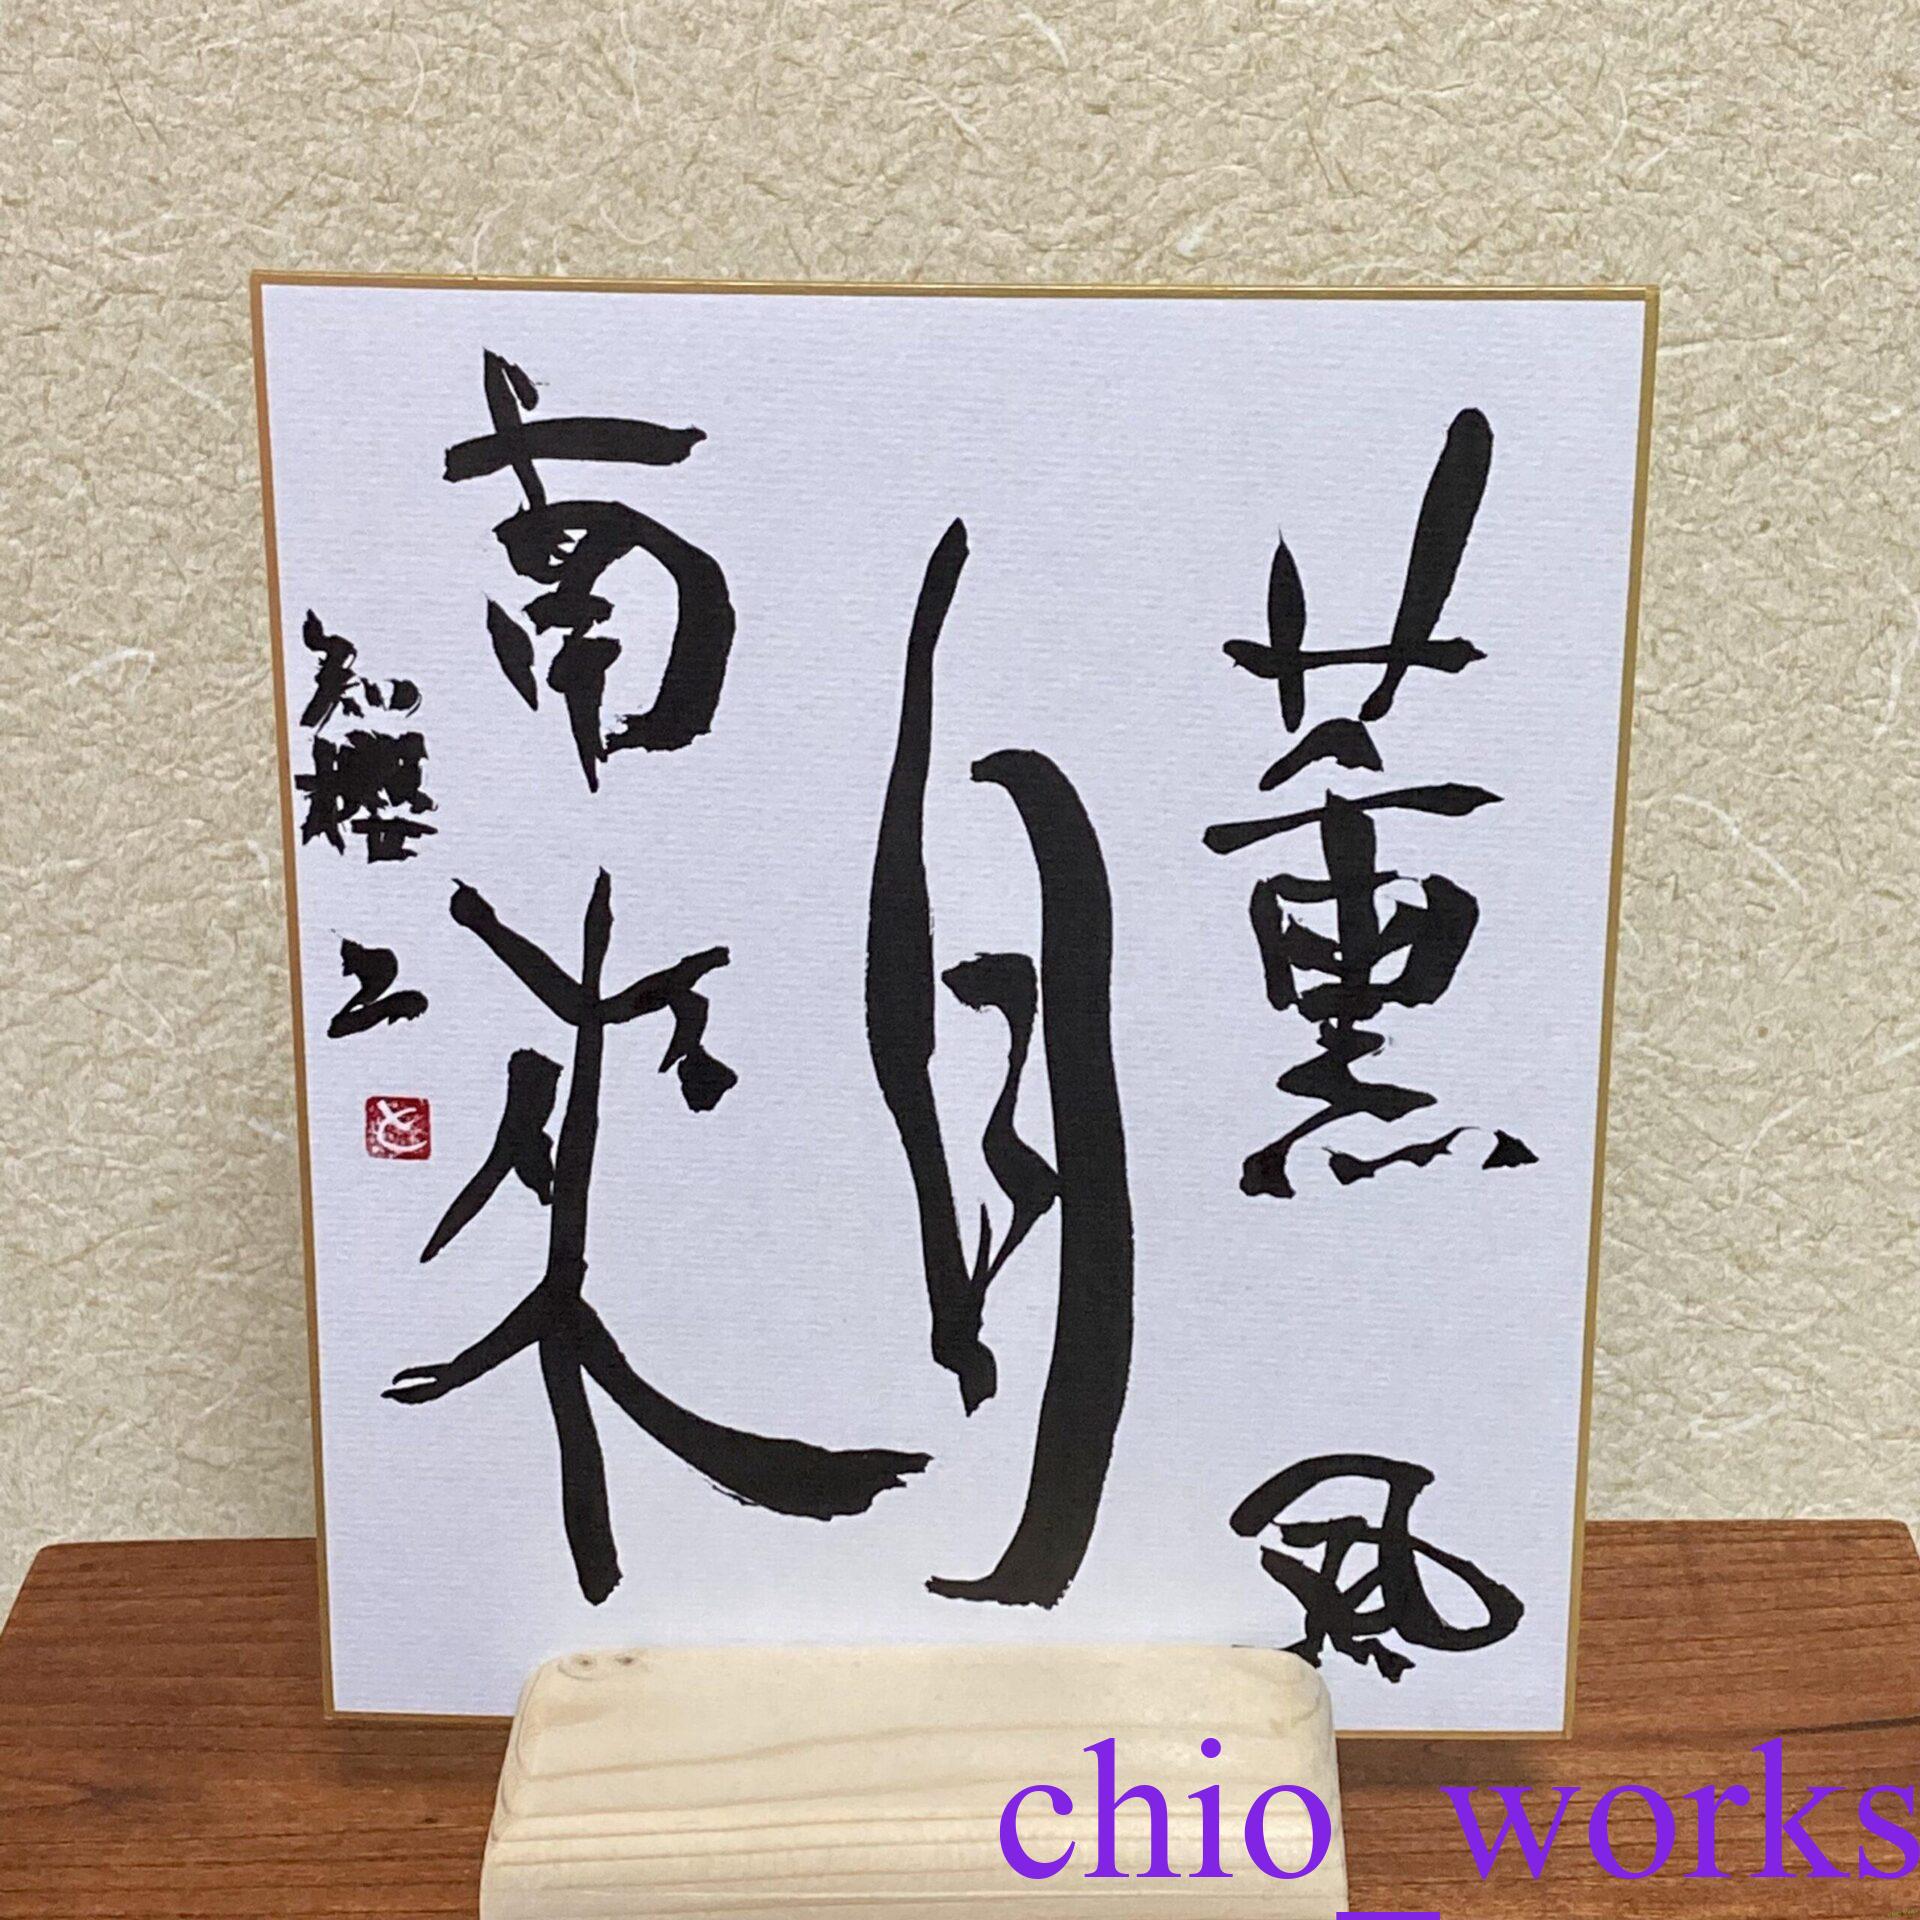 薫風
自
南来
知櫻
と
chio_works